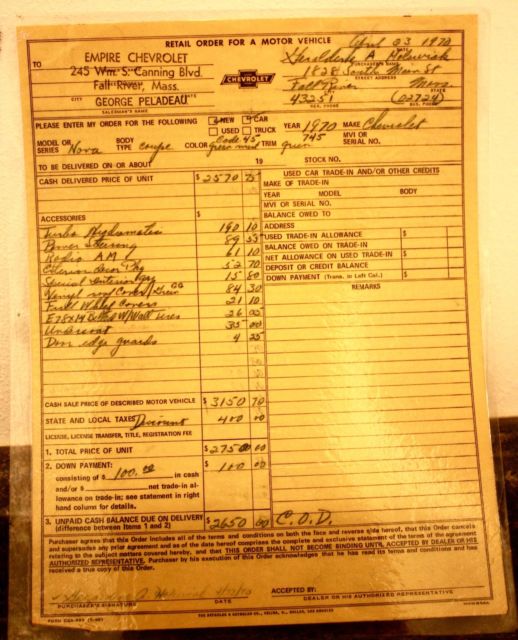 RETAIL ORDER FOR A MOTOR VEHICLE
April 23 1970
DATE
TO
EMPIRE CHEVROLET
245 Wm. S. Canning Blvd.
Fall River, Mass.
CITY STATE
GEORGE PELADEAU
SALESMAN'S NAME
CHEVROLET
Geraldine A
PURCHASER'S NAME
1828 South Main St
STREET ADDRESS
Fall River Mass.
CITY STATE
43251 (02724)
RES. PHONE BUS. PHONE
PLEASE ENTER MY ORDER FOR THE FOLLOWING NEW CAR USED TRUCK YEAR 1970 MAKE Chevrolet
MODEL OR SERIES Nova BODY TYPE coupe COLOR Code 45 green mist TRIM 745 green MVI OR SERIAL NO.
TO BE DELIVERED ON OR ABOUT 19 STOCK NO.
CASH DELIVERED PRICE OF UNIT $ 2570 75
ACCESSORIES $
Turbo Hydramatic 190 10
Power Steering 89 55
Radio A M 61 10
Exterior Decor Pkg 52 70
Special Interior
84 30
Full Wheel Covers 21 10
E78x14 W/Wall tires 26 05
Undercoat 35 00
Door edge guards 4 25
CASH SALE PRICE OF DESCRIBED MOTOR VEHICLE $ 3150 70
STATE AND LOCAL TAXES Discount 400 00
LICENSE, LICENSE TRANSFER, TITLE, REGISTRATION FEE
1. TOTAL PRICE OF UNIT $ 2750 00
2. DOWN PAYMENT: $ 100 00
consisting of $ 100.00 in cash
and/or $ net trade-in al-
lowance on trade-in; see statement in right
hand column for details.
3. UNPAID CASH BALANCE DUE ON DELIVERY
(difference between Items 1 and 2) $ 2650 00 C.O.D.
USED CAR TRADE-IN AND/OR OTHER CREDITS
MAKE OF TRADE-IN
YEAR MODEL BODY
MVI OR SERIAL NO.
BALANCE OWED TO
ADDRESS
USED TRADE-IN ALLOWANCE $ $
BALANCE OWED ON TRADE-IN
NET ALLOWANCE ON USED TRADE-IN $
DEPOSIT OR CREDIT BALANCE
DOWN PAYMENT (Trans. to Left Col.) $
REMARKS
Purchaser agrees that this Order includes all of the terms and conditions on both the face and reverse side hereof, that this Order cancels
and supersedes any prior agreement and as of the date hereof comprises the complete and exclusive statement of the terms of the agreement
relating to the subject matters covered hereby, and that THIS ORDER SHALL NOT BECOME BINDING UNTIL ACCEPTED BY DEALER OR HIS
AUTHORIZED REPRESENTATIVE. Purchaser by his execution of this Order acknowledges that he has read its terms and conditions and has
received a true copy of this Order.
PURCHASER'S SIGNATURE DATE
ACCEPTED BY:
DEALER OR HIS AUTHORIZED REPRESENTATIVE
THE REYNOLDS & REYNOLDS CO., CELINA, O., DALLAS, LOS ANGELES